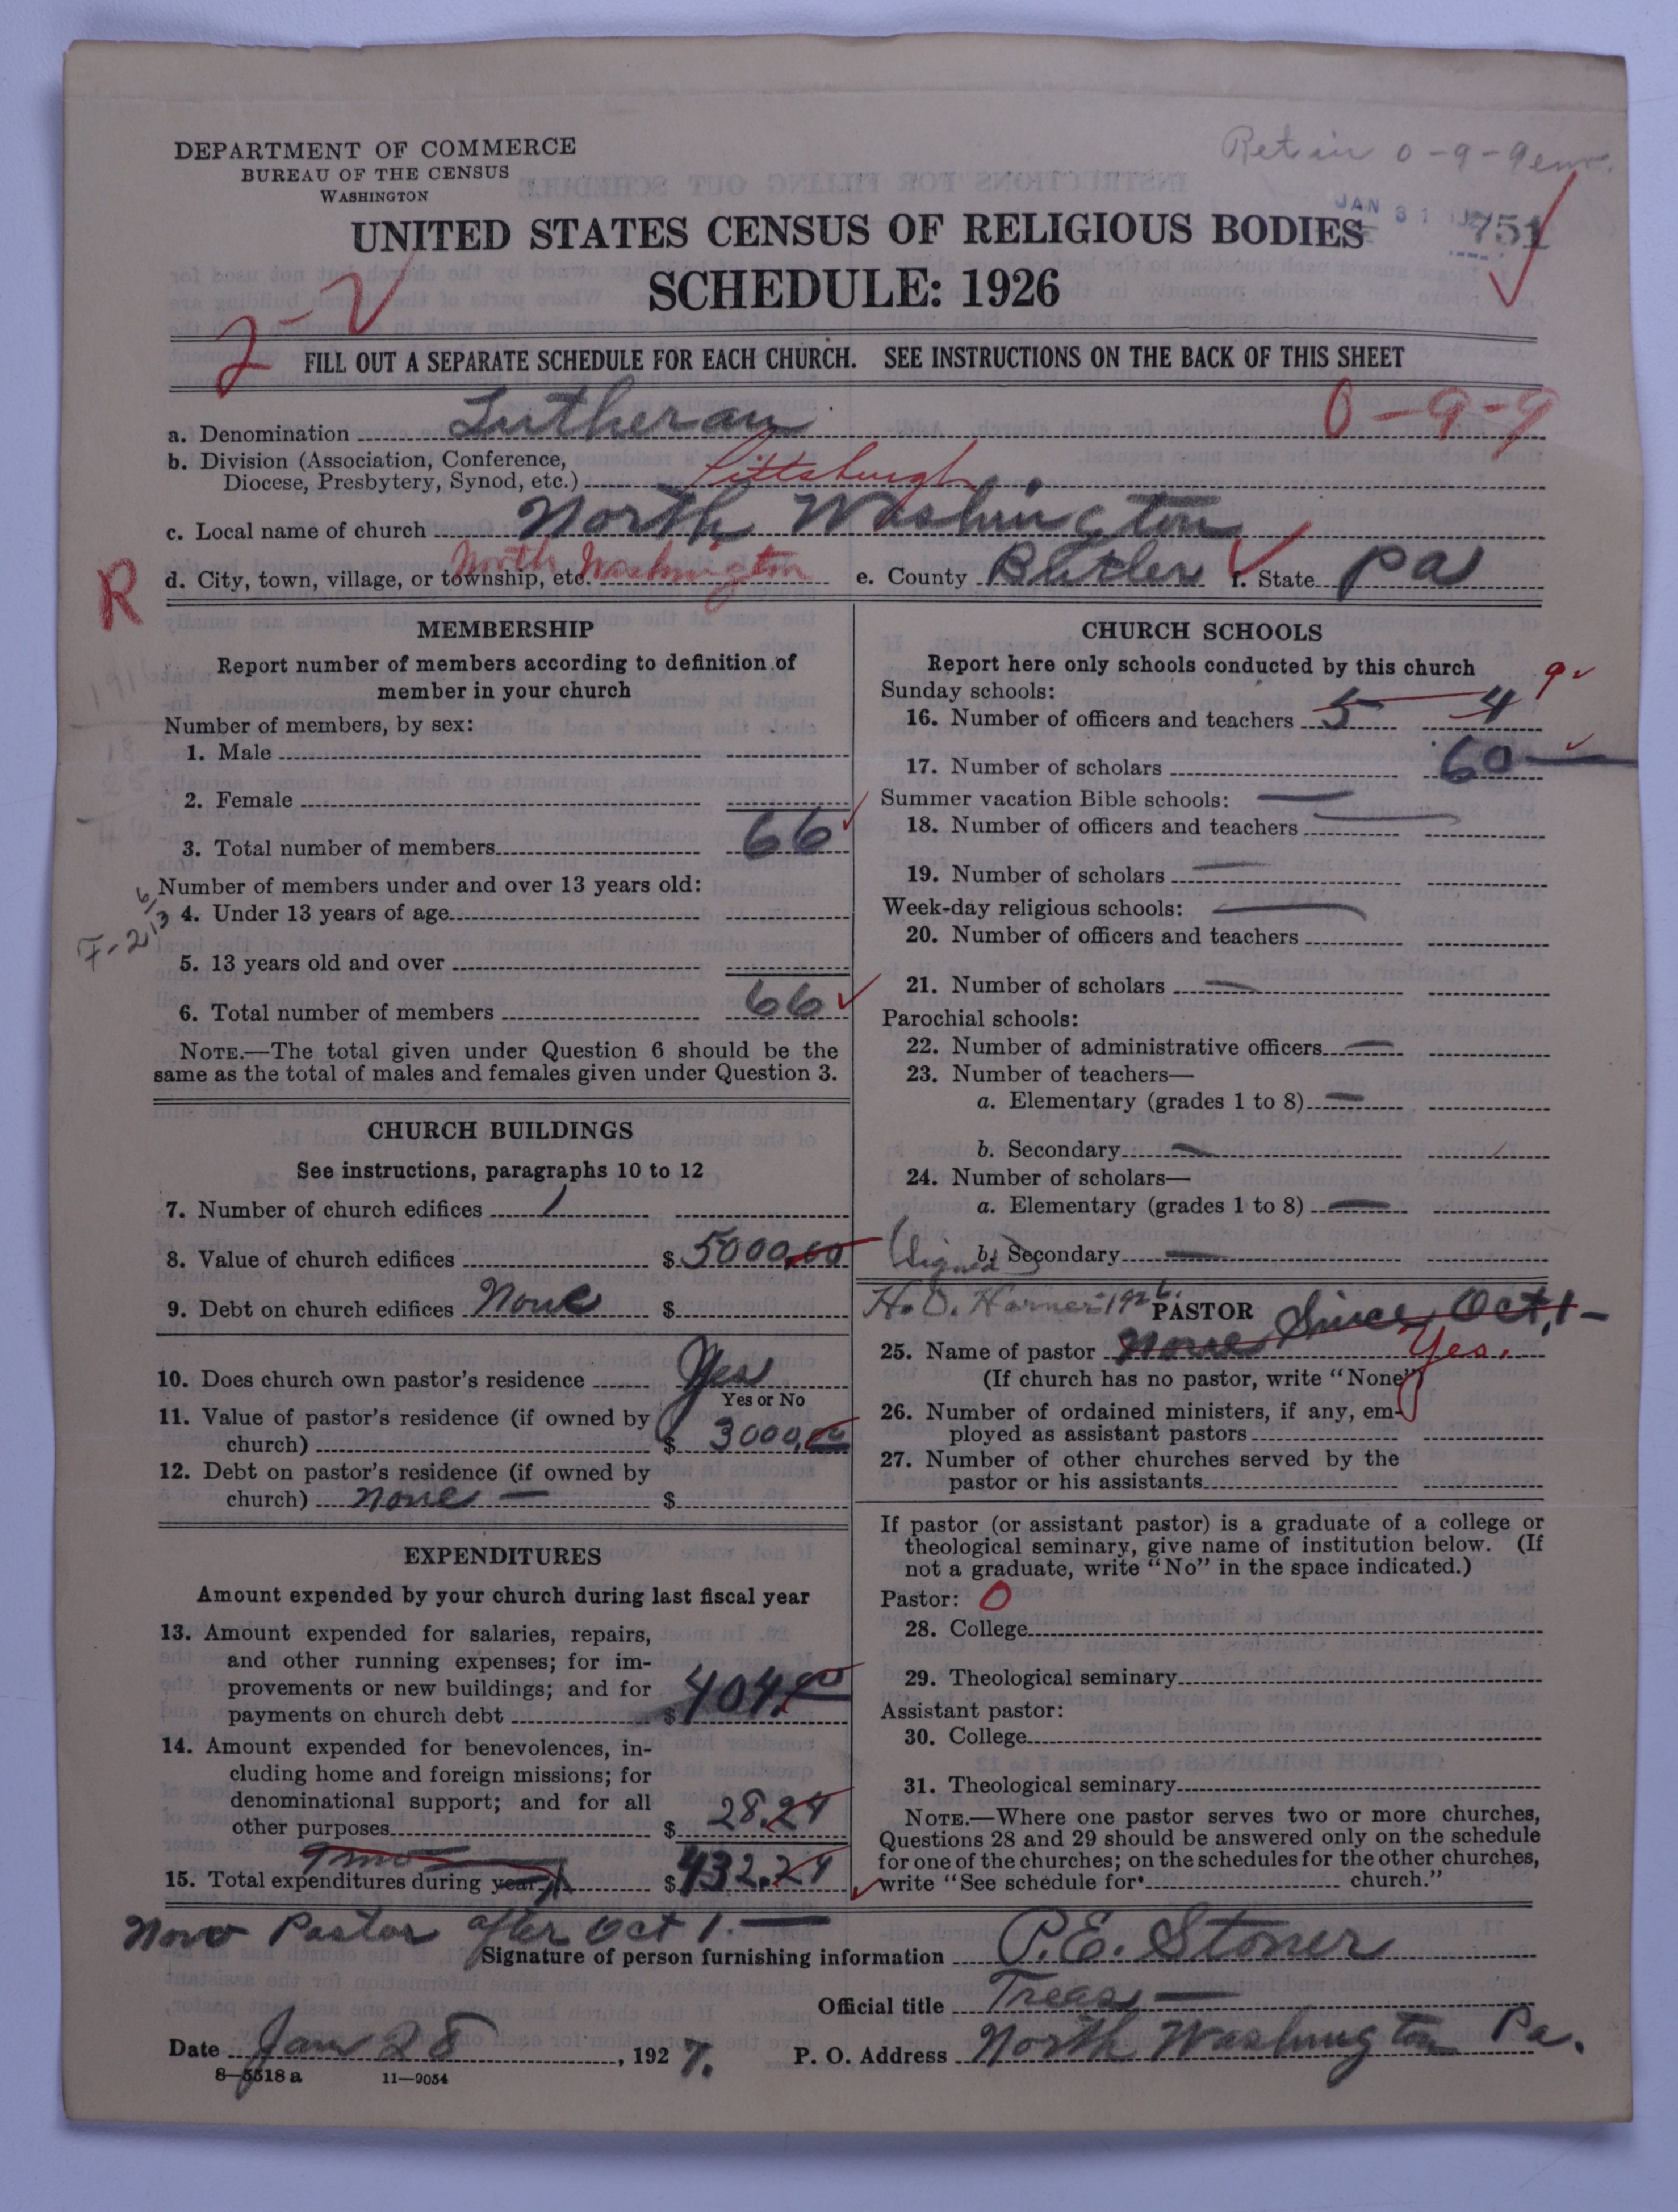 DEPARTMENT OF COMMERCE
BUREAU OF THE CENSUS
WASHINGTON
Retain 0-9-9 enc.
JAN 31
751
UNITED STATES CENSUS OF RELIGIOUS BODIES
SCHEDULE: 1926
2-2
FILL OUT A SEPARATE SCHEDULE FOR EACH CHURCH. SEE INSTRUCTIONS ON THE BACK OF THIS SHEET
0-9-9
a. Denomination Lutheran
b. Division (Association, Conference,
Diocese, Presbytery, Synod, etc.) Pittsburgh
c. Local name of church North Washington
d. City, town, village, or township, etc. North Washington e. County Butler f. State Pa
R
MEMBERSHIP
Report number of members according to definition of
member in your church
Number of members, by sex:
1. Male
2. Female
3. Total number of members 66
Number of members under and over 13 years old:
4. Under 13 years of age
5. 13 years old and over
6. Total number of members 66
NOTE.—The total given under Question 6 should be the
same as the total of males and females given under Question 3.
CHURCH BUILDINGS
See instructions, paragraphs 10 to 12
7. Number of church edifices 1
8. Value of church edifices $ 5000.00
9. Debt on church edifices None $
10. Does church own pastor's residence Yes
Yes or No
11. Value of pastor's residence (if owned by
church) $ 3000.00
12. Debt on pastor's residence (if owned by
church) None — $
EXPENDITURES
Amount expended by your church during last fiscal year
13. Amount expended for salaries, repairs,
and other running expenses; for im-
provements or new buildings; and for
payments on church debt $ 404.00
14. Amount expended for benevolences, in-
cluding home and foreign missions; for
denominational support; and for all
other purposes $ 28.24
15. Total expenditures during year $ 432.24
CHURCH SCHOOLS
Report here only schools conducted by this church
Sunday schools: 9
16. Number of officers and teachers 5 4
17. Number of scholars 60
Summer vacation Bible schools: —
18. Number of officers and teachers —
19. Number of scholars —
Week-day religious schools: —
20. Number of officers and teachers
21. Number of scholars —
Parochial schools:
22. Number of administrative officers —
23. Number of teachers—
a. Elementary (grades 1 to 8) —
b. Secondary —
24. Number of scholars—
a. Elementary (grades 1 to 8) —
Signed b. Secondary —
H. O. Harner 1926. PASTOR
25. Name of pastor None Since Oct, 1 — Yes.
(If church has no pastor, write "None")
26. Number of ordained ministers, if any, em-
ployed as assistant pastors
27. Number of other churches served by the
pastor or his assistants
If pastor (or assistant pastor) is a graduate of a college or
theological seminary, give name of institution below. (If
not a graduate, write "No" in the space indicated.)
Pastor: 0
28. College
29. Theological seminary
Assistant pastor:
30. College
31. Theological seminary
NOTE.—Where one pastor serves two or more churches,
Questions 28 and 29 should be answered only on the schedule
for one of the churches; on the schedules for the other churches,
write "See schedule for church."
Now Pastor after Oct 1. —
Signature of person furnishing information P. E. Stoner
Official title Treas —
Date Jan 28, 1927. P. O. Address North Washington Pa.
8-5518 a 11-9054